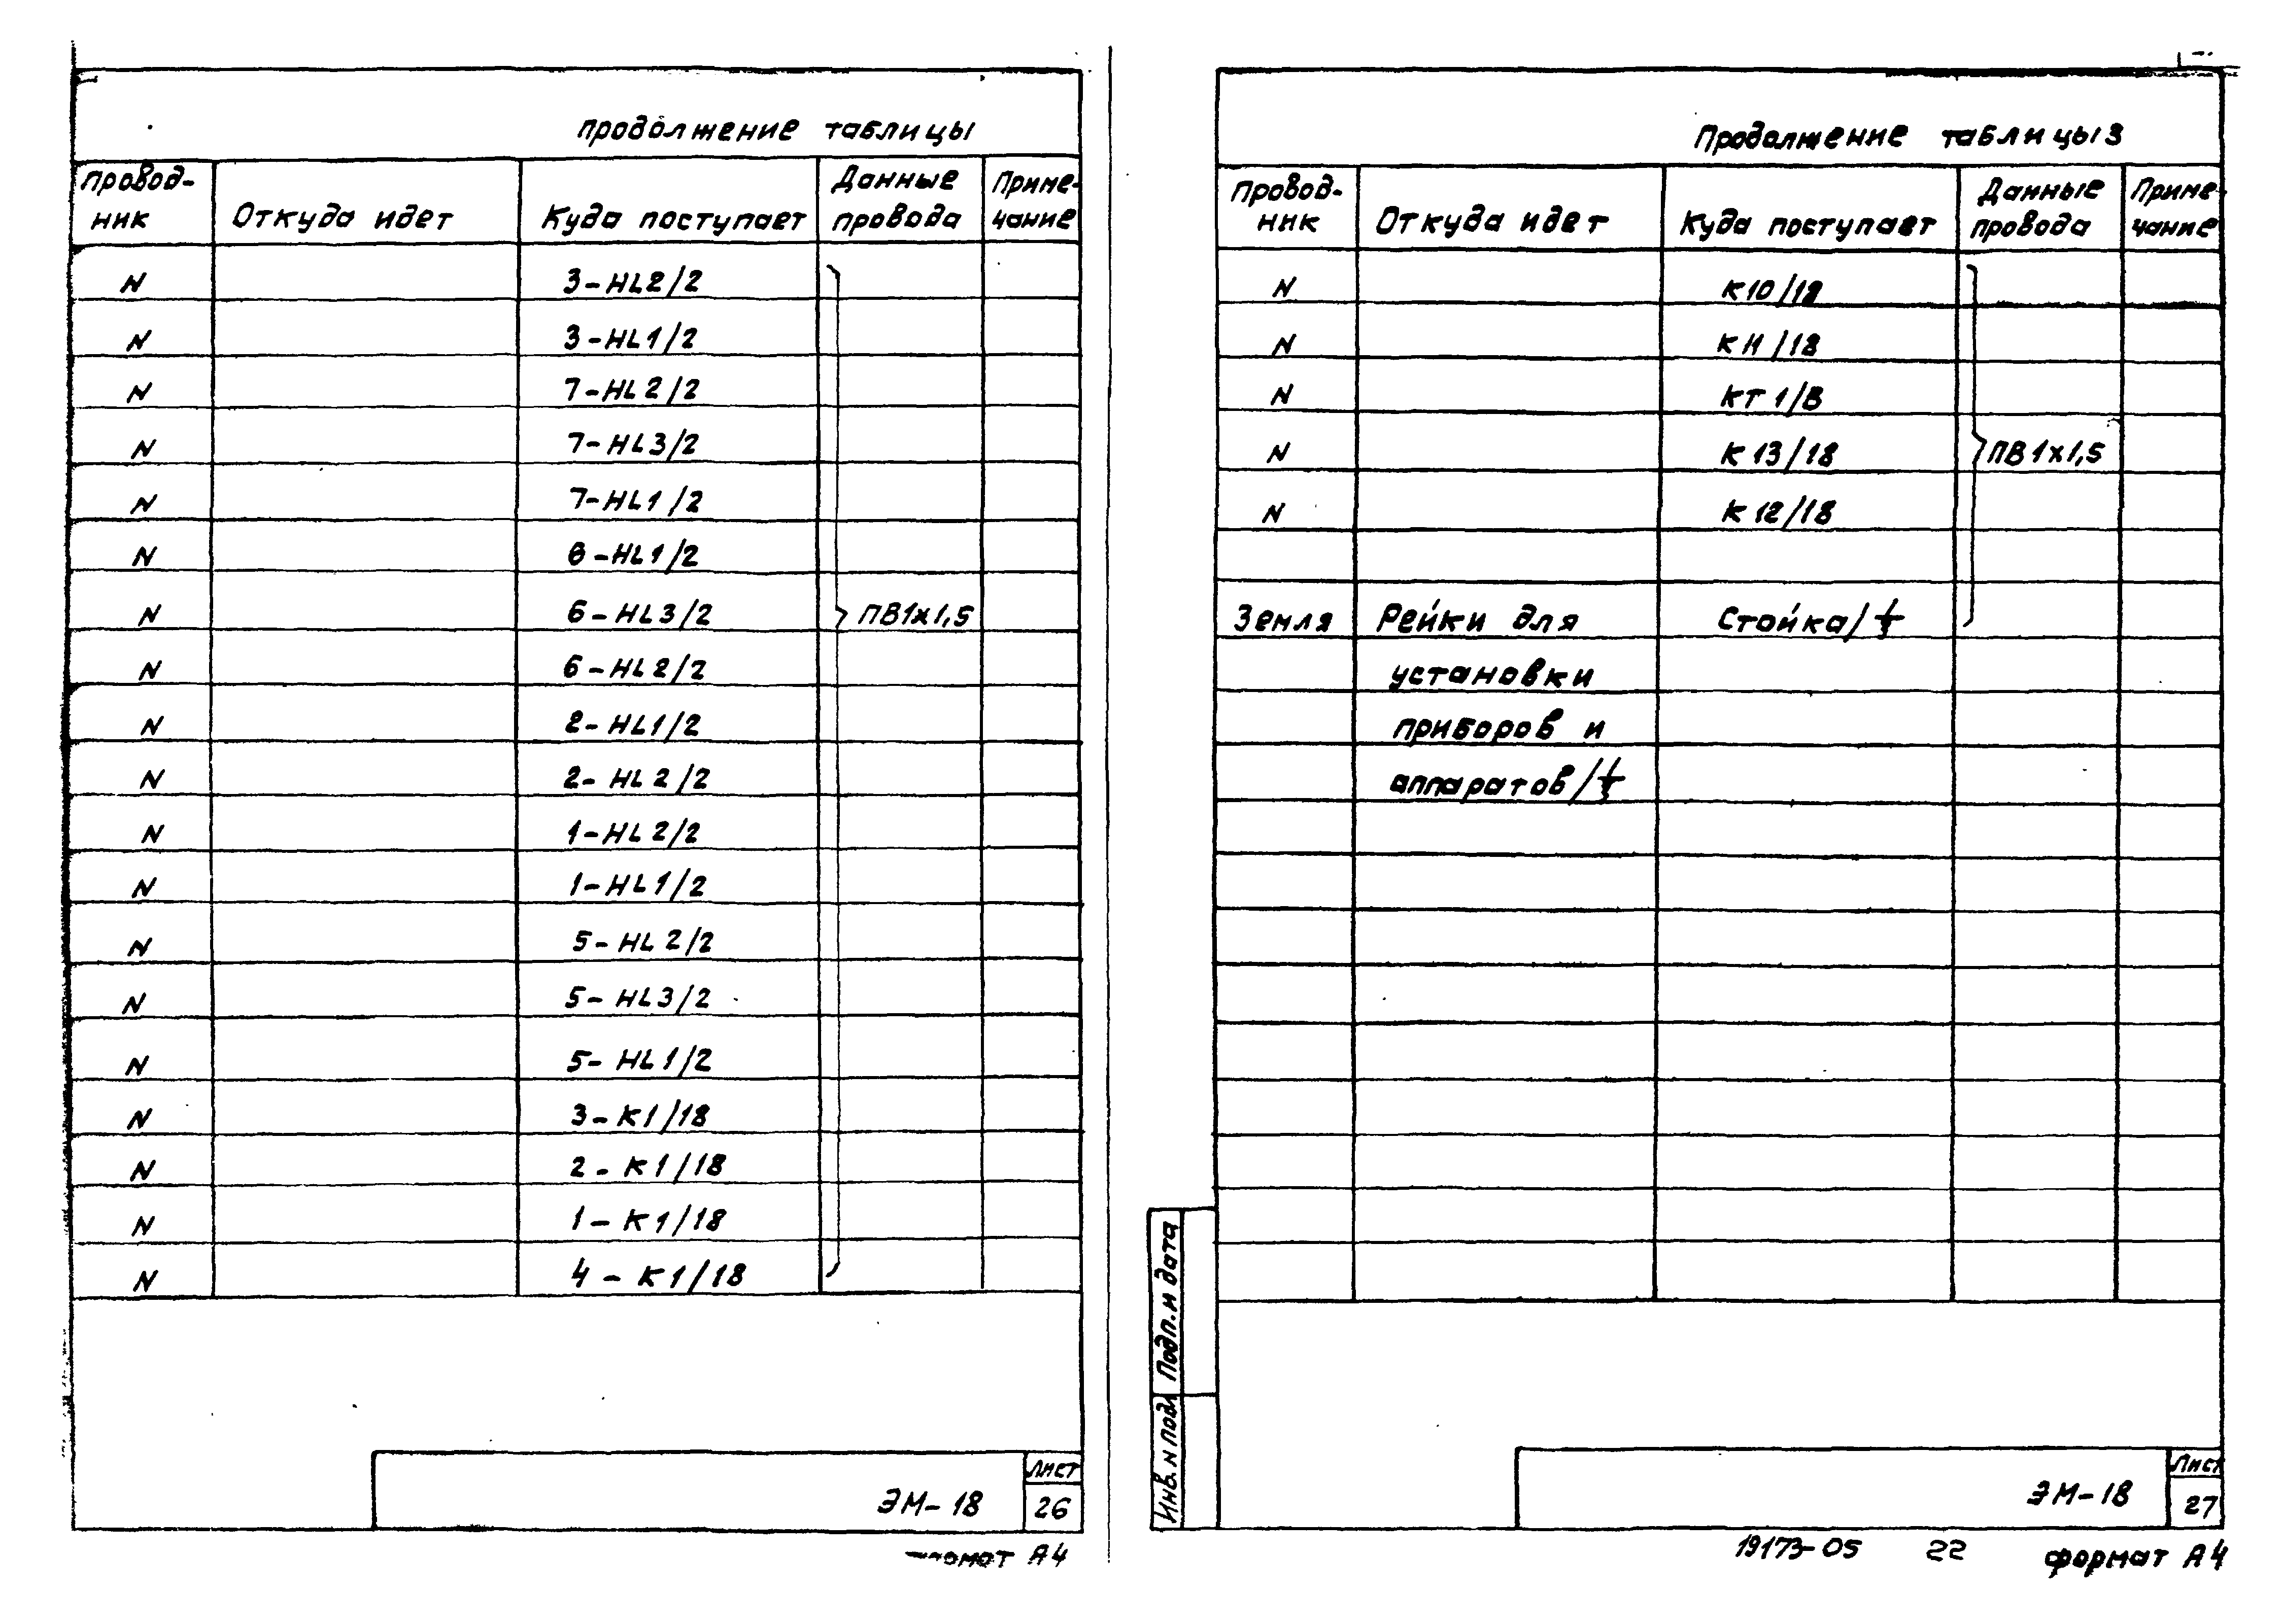 продолжение таблицы
Провод-
ник
Откуда идет
Куда поступает
Данные
провода
Приме-
чание
N 3-HL2/2
N 3-HL1/2
N 7-HL2/2
N 7-HL3/2
N 7-HL1/2
N 6-HL1/2
N 6-HL3/2 ПВ1х1,5
N 6-HL2/2
N 2-HL1/2
N 2-HL2/2
N 1-HL2/2
N 1-HL1/2
N 5-HL2/2
N 5-HL3/2
N 5-HL1/2
N 3-К1/18
N 2-К1/18
N 1-К1/18
N 4-К1/18
ЭМ-18
Лист
26
А4
Продолжение таблицы 3
Провод-
ник
Откуда идет
Куда поступает
Данные
провода
Приме-
чание
N К10/18
N К11/18
N КТ1/В
N К13/18 ПВ1х1,5
N К12/18
Земля Рейки для Стойка/⏚
установки
приборов и
аппаратов/⏚
Подп. и дата
Инв. N подл
ЭМ-18
Лист
27
19173-05 22 формат А4